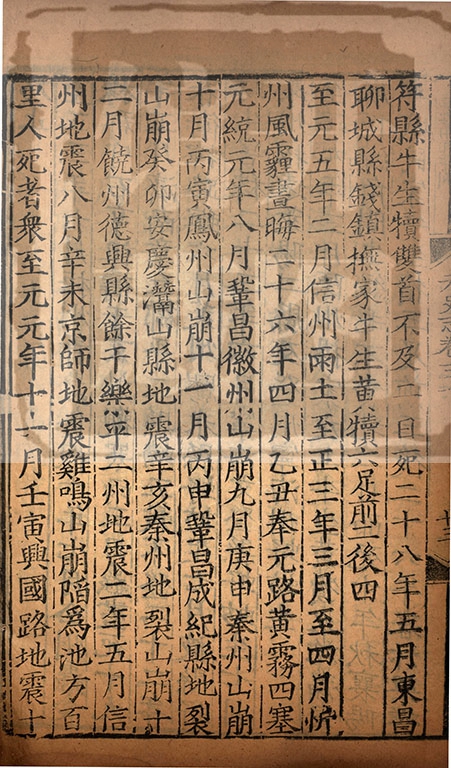 符縣牛生犢雙首不及二日死二十八年五月東昌
聊城縣錢鎮撫家牛生黃犢六足前二後四
至元五年二月信州雨土至正三年三月至四月忻
州風霾晝晦二十六年四月乙丑奉元路黃霧四塞
元統元年八月鞏昌徽州山崩九月庚申秦州山崩
十月丙寅鳳州山崩十一月丙申鞏昌成紀縣地裂
山崩癸卯安慶灊山縣地震辛亥秦州地裂山崩十
二月饒州德興縣餘干樂平二州地震二年五月信
州地震八月辛未京師地震雞鳴山崩陷爲池方百
里人死者衆至元元年十一月壬寅興國路地震十